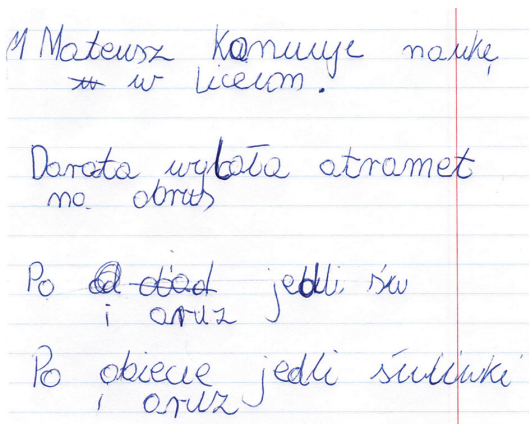 M Mateusz Kanuuje naukę
w liceum.
Darata wybała atramet
na obrus
Po jedli św
i aruz
Po obiecie jedli śwliwki
i aruz